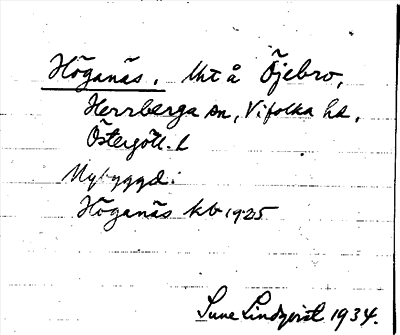 Höganäs. Uht å Öjebro,
Herrberga sn, Vifolka hd,
Östergötl. l
Nybyggd:
Höganäs kb 1925
Sune Lindqvist 1934.